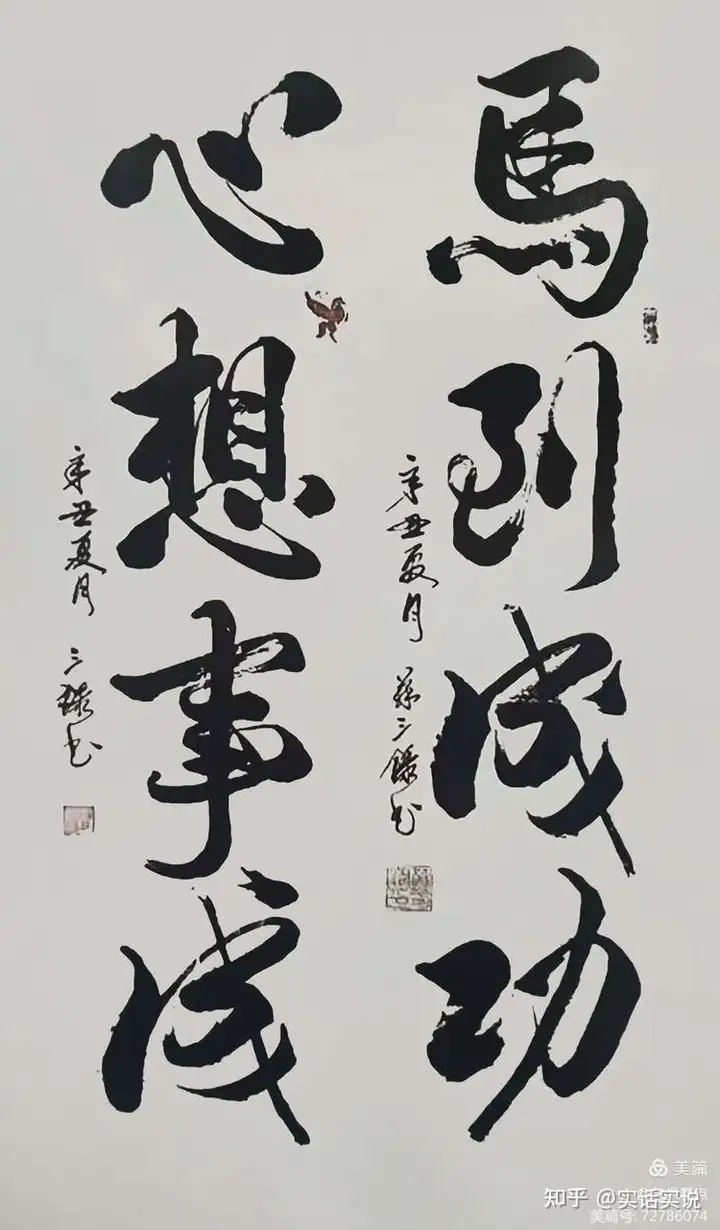 馬到成功
辛丑夏月 孫三錄书
心想事成
辛丑夏月 三錄书
美篇
知乎 @实话实说
美篇号: 72786074